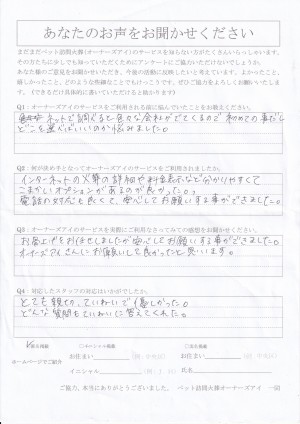 あなたのお声をお聞かせください
まだまだペット訪問火葬(オーナーズアイ)のサービスを知らない方がたくさんいらっしゃいます。
その方たちに少しでも知っていただくためにアンケートにご協力いただけないでしょうか。
あなた様のご意見をお聞かせいただき、今後の活動に反映したいと考えています。よかったこと、
嬉しかったこと、どのような些細なことでもけっこうです。ぜひご協力をよろしくお願いいたしま
す。(できるだけ具体的に書いていただけると助かります)
Q1:オーナーズアイのサービスをご利用される前に悩んでいたことをお教えください。
ネットで調べると色々な会社がでてくるので初めての事だし
どこを選べばいいのか悩みました。
Q2:何が決め手となってオーナーズアイのサービスをご利用されましたか。
インターネットの火葬の詳細や料金表示など分かりやすくて
こまかいオプションがあるのが良かった。
電話の対応も良くて、安心してお願いする事ができました。
Q3:オーナーズアイのサービスを実際にご利用なさってみての感想をお聞かせください。
お骨上げをお任せしましたが安心してお願いする事ができました。
オーナーズアイさんにお願いして良かったと思います。
Q4:対応したスタッフの対応はいかがでしたか。
とても親切、ていねいで優しかった。
どんな質問もていねいに答えてくれた。
ホームページでご紹介
□イニシャル掲載
お住まい
お住まい
イニシャル
氏名
ご協力、本当にありがとうございました。 ペット訪問火葬オーナーズアイ 一同